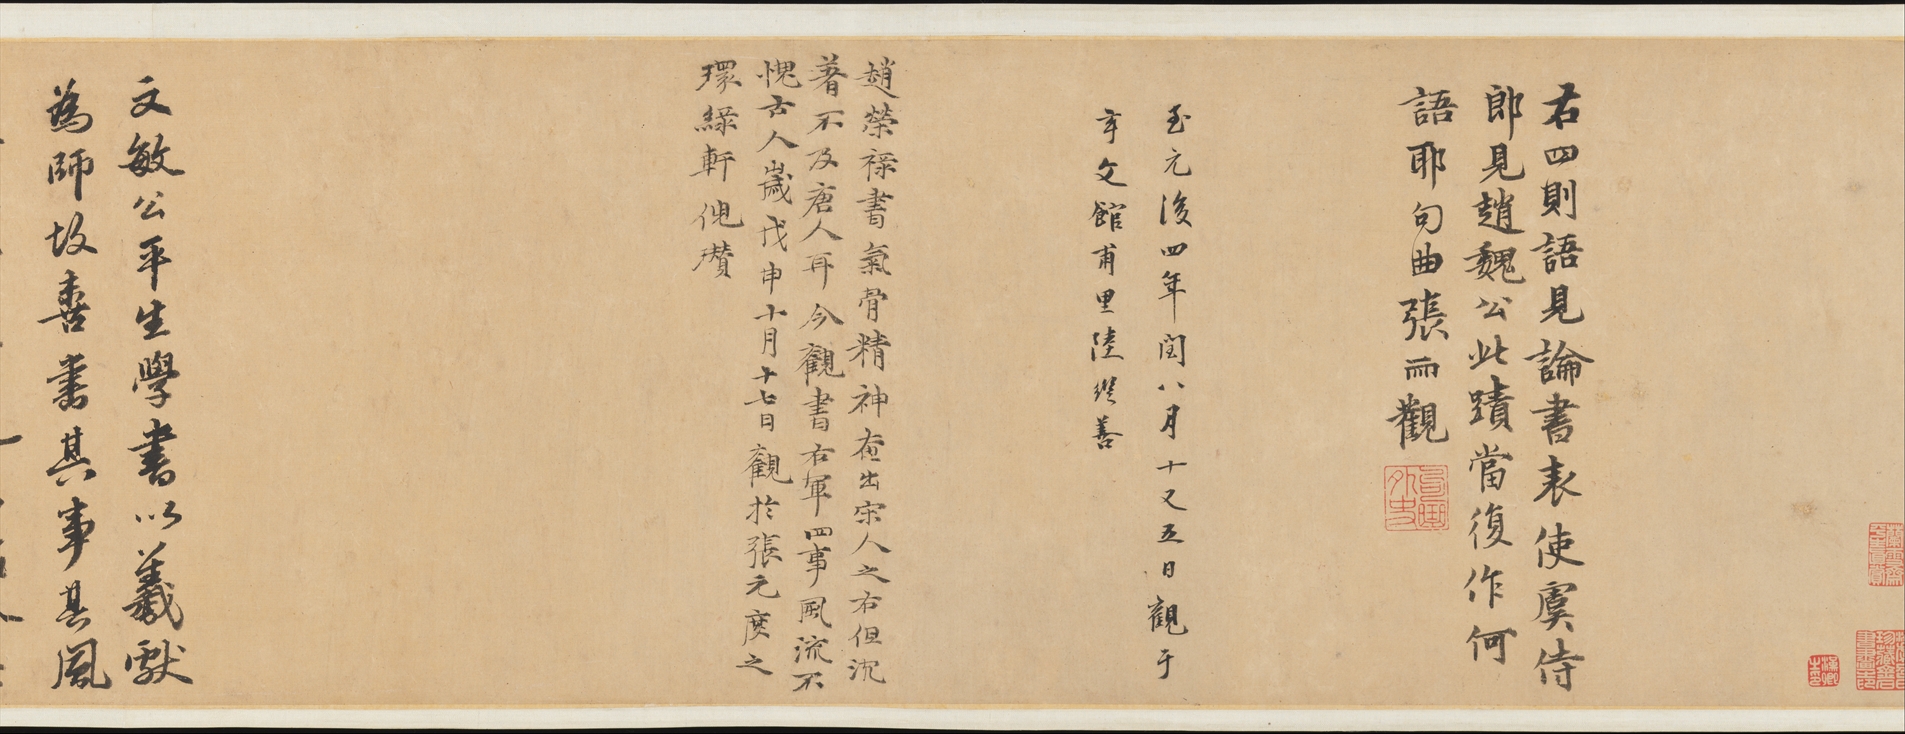 右四則語見論書表使虞侍
郎見趙魏公此蹟當復作何
語耶句曲張雨觀
至元後四年閏八月十又五日觀于
玄文館甫里陸繼善
趙榮祿書氣骨精神在出宋人之右但沉
著不及唐人耳今觀書右軍四事風流不
愧古人歲戊申十月十七日觀於張元度之
環綠軒倪瓚
文敏公平生學書以羲獻
為師故喜書其事其風